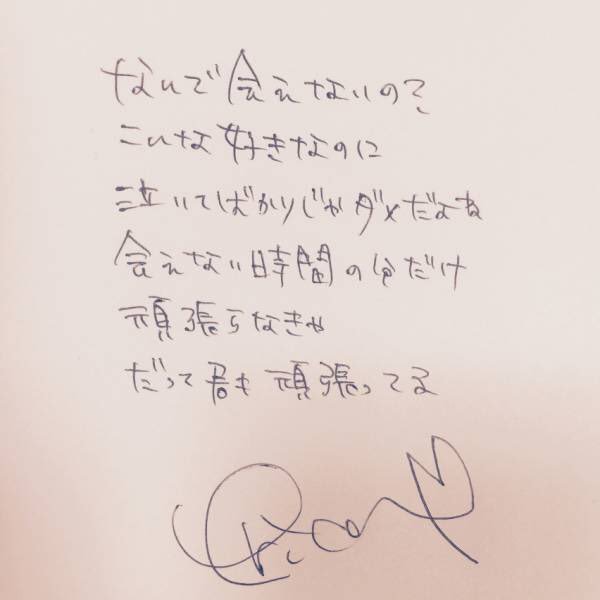 なんで会えないの?
こんな好きなのに
泣いてばかりじゃダメだよね
会えない時間の分だけ
頑張らなきゃ
だって君も頑張ってる